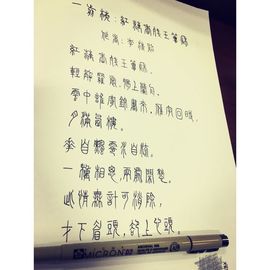 一剪梅：紅藕香殘玉簟秋
作者：李清照
紅藕香殘玉簟秋，
輕解羅裳，獨上蘭舟。
雲中誰寄錦書來，雁字回時，
月滿西樓。
花自飄零水自流。
一種相思，兩處閒愁。
此情無計可消除，
才下眉頭，卻上心頭。
MICRON